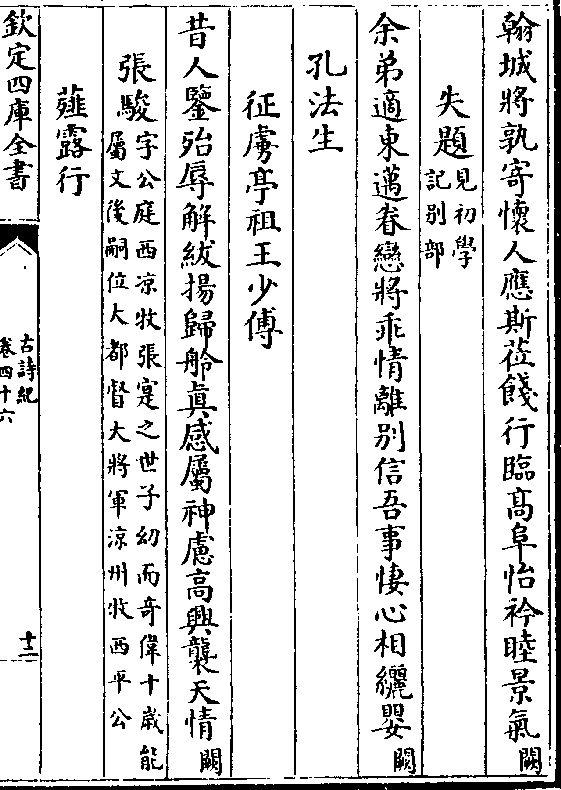 翰城將孰寄懷人應斯莅餞行臨高阜怡衿睦景氣闕
失題見初學
記別部
余弟適東邁眷戀將乖情離别信吾事悽心相纚嬰闕
孔法生
征虜亭祖王少傅
昔人鑒殆辱解紱揚歸舲真感屬神慮高興襲天情闕
張駿字公庭西凉牧張寔之世子幼而奇偉十歲能
屬文後嗣位大都督大將軍涼州牧西平公
薤露行
欽定四庫全書
古詩紀
卷四十六
十二